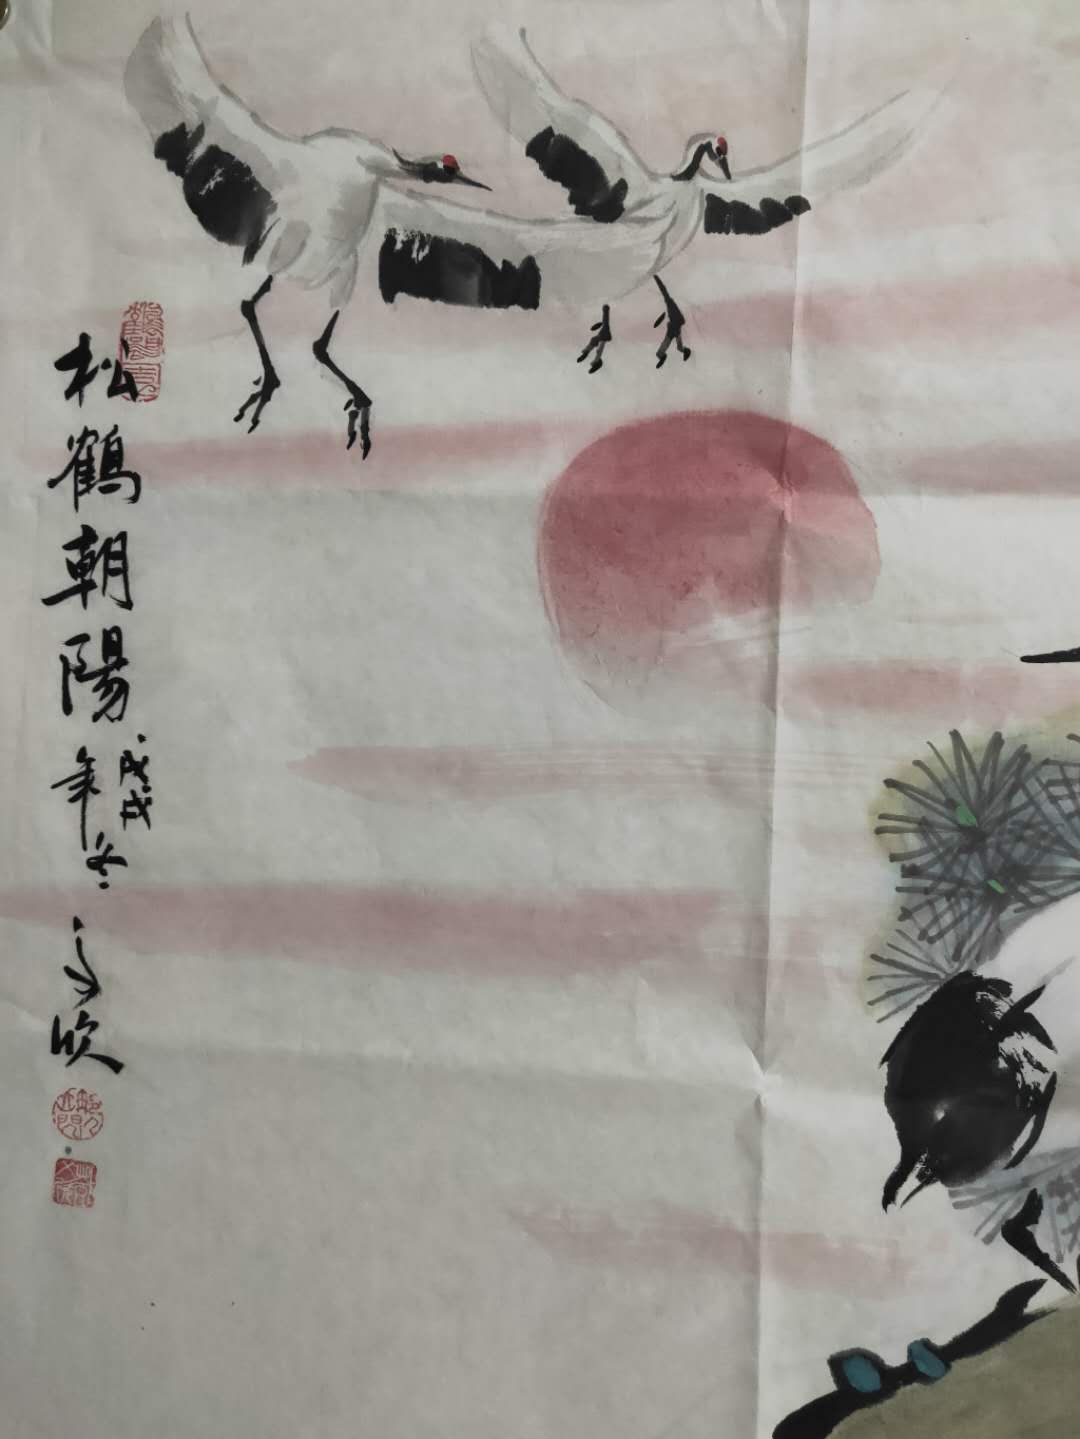 松鶴朝陽
戊戌
年冬
文欣